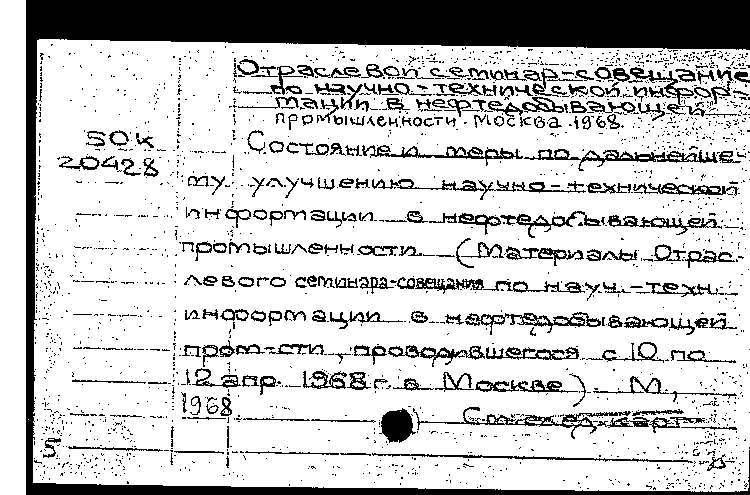 Отраслевой семинар-совещание
по научно-технической инфор-
мации в нефтедобывающей
промышленности. Москва. 1968.
50К
20428
Состояние и меры по дальнейше-
му улучшению научно-технической
информации в нефтедобывающей
промышленности. (Материалы Отрас-
левого семинара-совещания по науч.-техн.
информации в нефтедобывающей
пром-сти, проводившегося с 10 по
12 апр. 1968 г. в Москве). М.,
1968
См. след. карт.